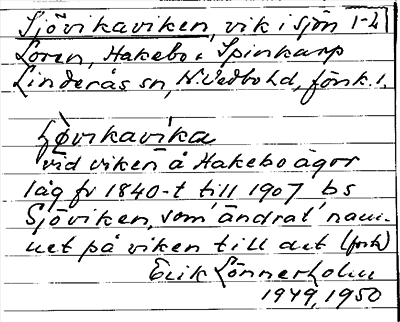 Sjövikaviken, vik i sjön 1-21
Loren, Hakebo, Spinkarp
Linderås sn, N. Vedbo hd, Jönk. l.
vid viken å Hakebo ägor
låg fr 1840-t till 1907 bs
Sjöviken, som 'ändrat' nam-
net på viken till det (forts)
Erik Lönnerholm
1949, 1950